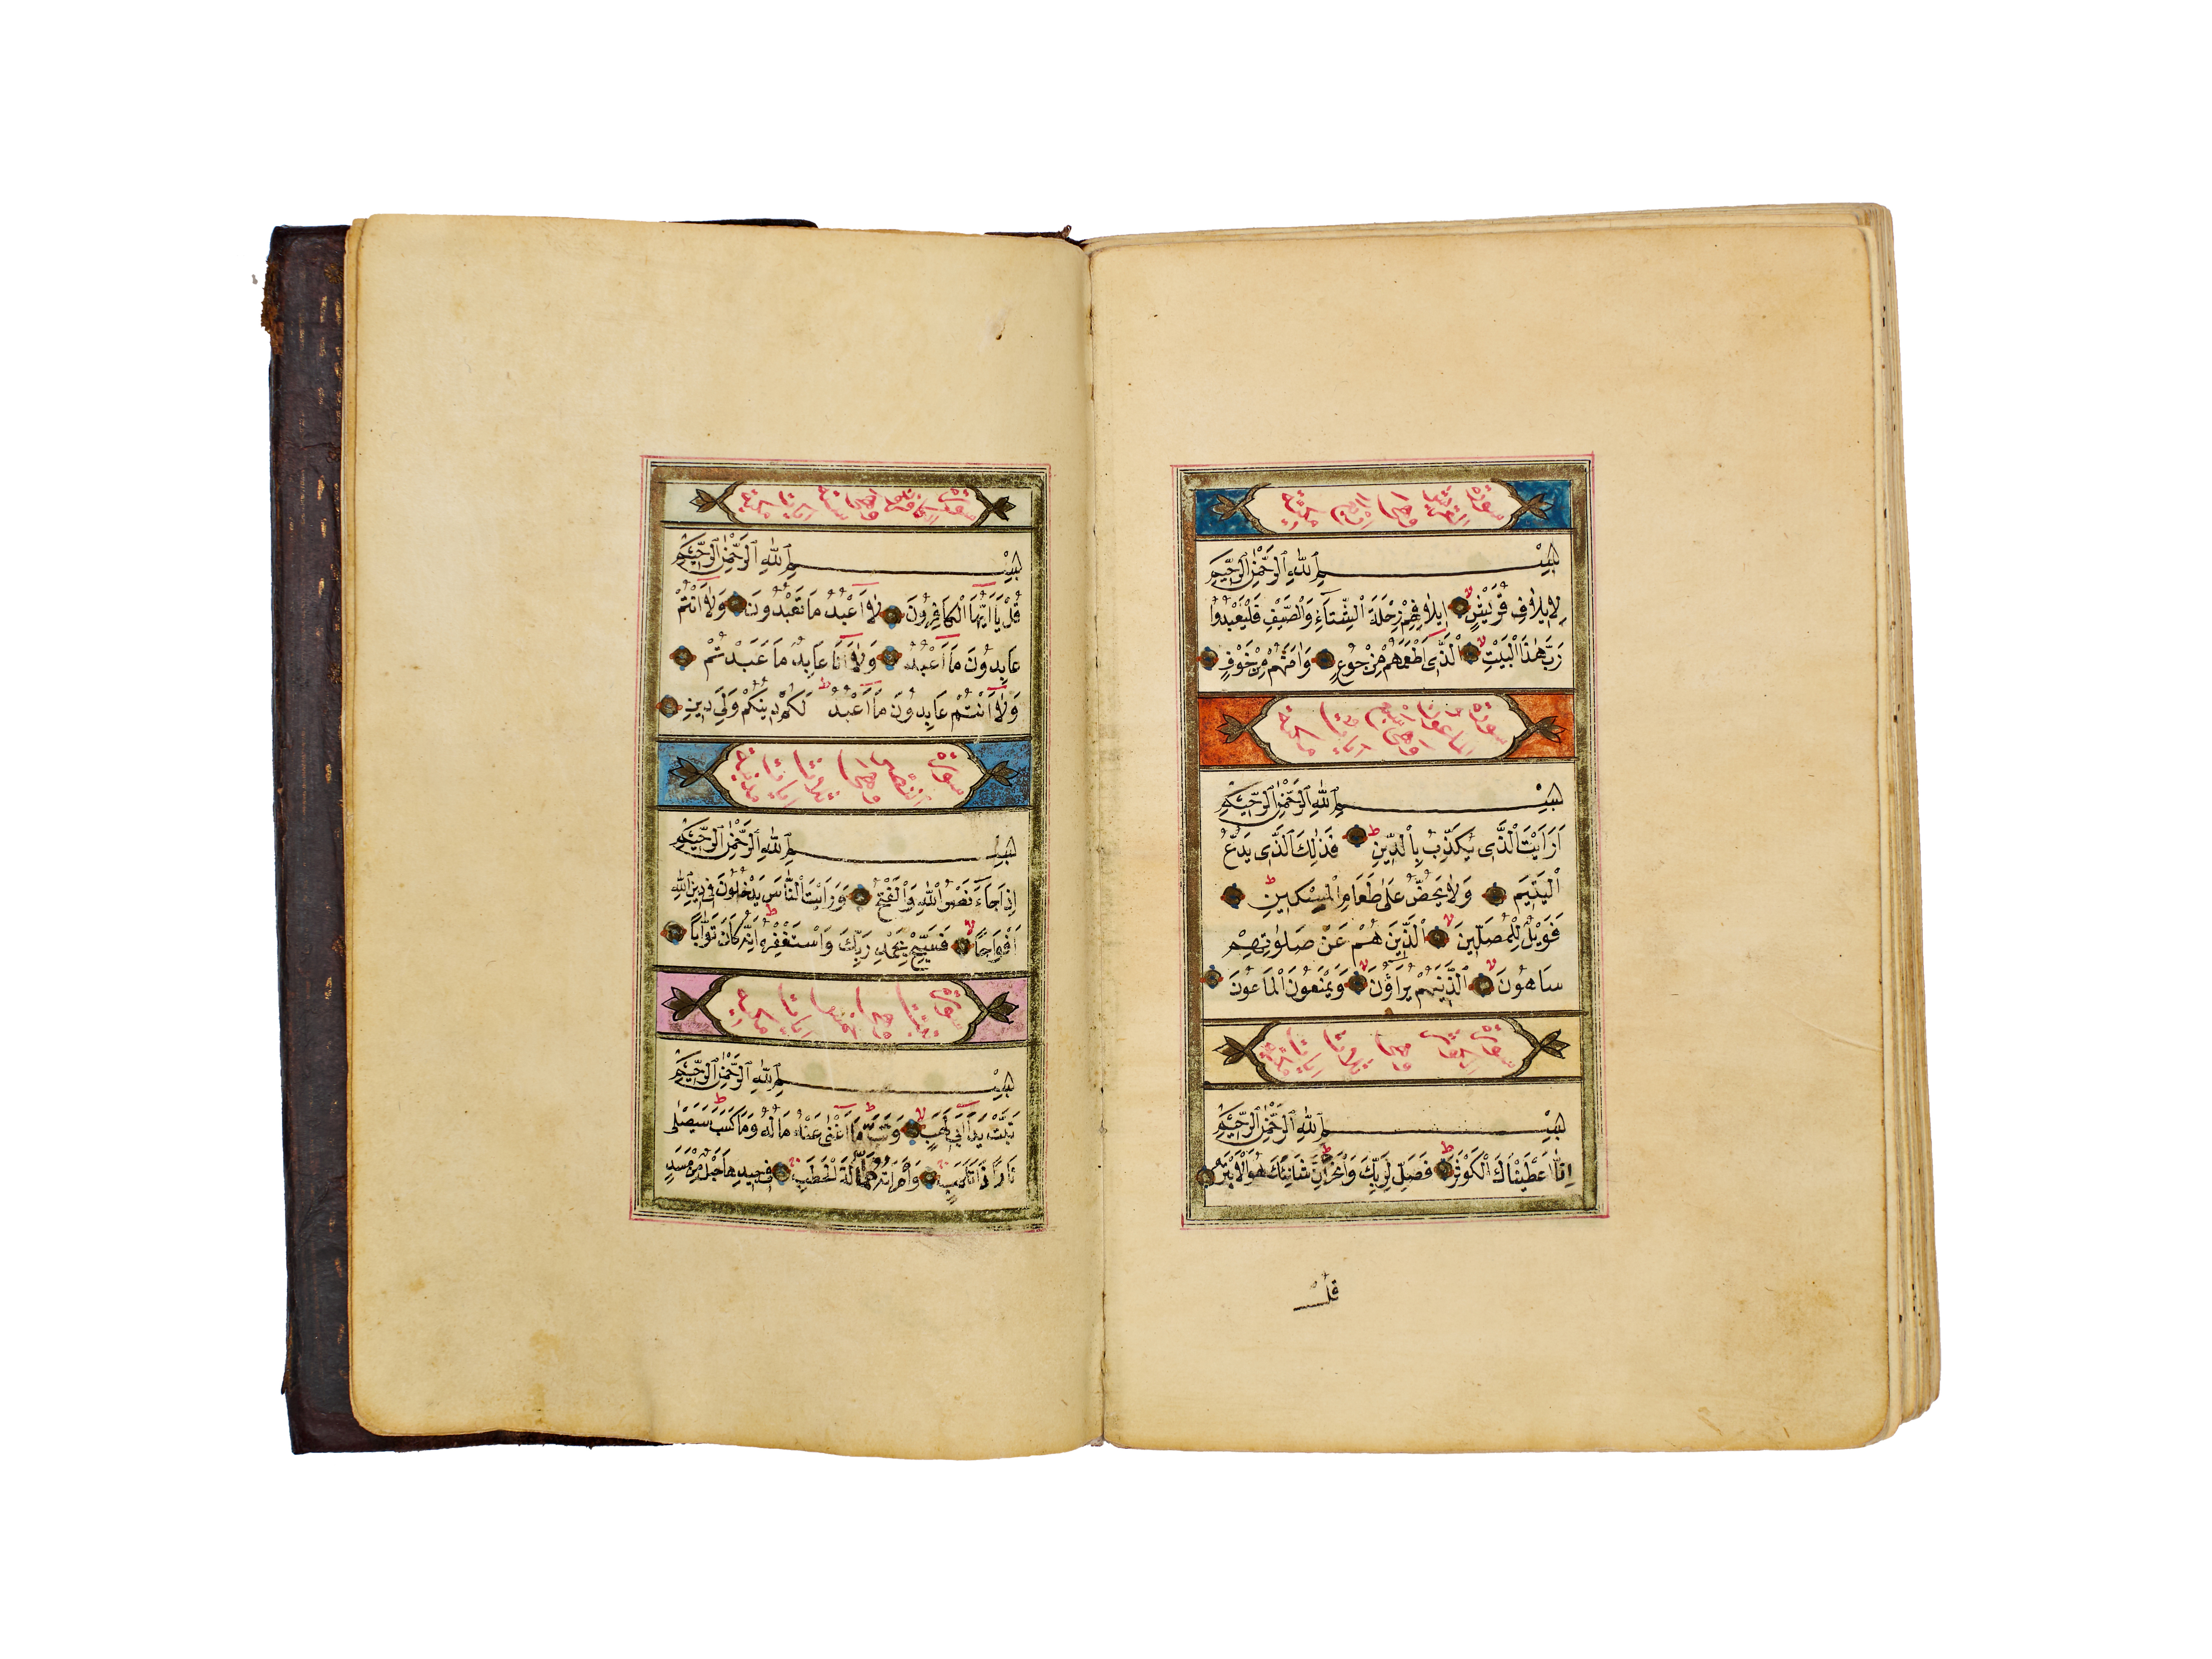 سورة القريش وهى اربع ايات مكية
بسم الله الرحمن الرحيم
لِاِيلَافِ قُرَيْشٍ اِيلَافِهِمْ رِحْلَةَ الشِّتَاءِ وَالصَّيْفِ فَلْيَعْبُدُوا
رَبَّ هٰذَا الْبَيْتِ الَّذِى اَطْعَمَهُمْ مِنْ جُوعٍ وَاٰمَنَهُمْ مِنْ خَوْفٍ
سورة الماعون وهى سبع ايات مكية
بسم الله الرحمن الرحيم
اَرَاَيْتَ الَّذِى يُكَذِّبُ بِالدِّينِ فَذٰلِكَ الَّذِى يَدُعُّ
الْيَتِيمَ وَلَا يَحُضُّ عَلٰى طَعَامِ الْمِسْكِينِ
فَوَيْلٌ لِلْمُصَلِّينَ الَّذِينَ هُمْ عَنْ صَلٰوتِهِمْ
سَاهُونَ الَّذِينَ هُمْ يُرَاؤُنَ وَيَمْنَعُونَ الْمَاعُونَ
سورة الكوثر وهى ثلاث ايات مكية
بسم الله الرحمن الرحيم
اِنَّا اَعْطَيْنَاكَ الْكَوْثَرَ فَصَلِّ لِرَبِّكَ وَانْحَرْ اِنَّ شَانِئَكَ هُوَ الْاَبْتَرُ
قُلْ
سورة الكافرون وهى ستة ايات مكية
بسم الله الرحمن الرحيم
قُلْ يَا اَيُّهَا الْكَافِرُونَ لَا اَعْبُدُ مَا تَعْبُدُونَ وَلَا اَنْتُمْ
عَابِدُونَ مَا اَعْبُدُ وَلَا اَنَا عَابِدٌ مَا عَبَدْتُمْ
وَلَا اَنْتُمْ عَابِدُونَ مَا اَعْبُدُ لَكُمْ دِينُكُمْ وَلِىَ دِينِ
سورة النصر وهى ثلاث ايات مدنية
بسم الله الرحمن الرحيم
اِذَا جَاءَ نَصْرُ اللّٰهِ وَالْفَتْحُ وَرَاَيْتَ النَّاسَ يَدْخُلُونَ فِى دِينِ اللّٰهِ
اَفْوَاجًا فَسَبِّحْ بِحَمْدِ رَبِّكَ وَاسْتَغْفِرْهُ اِنَّهُ كَانَ تَوَّابًا
سورة تبت وهى خمس ايات مكية
بسم الله الرحمن الرحيم
تَبَّتْ يَدَا اَبِى لَهَبٍ وَتَبَّ مَا اَغْنٰى عَنْهُ مَالُهُ وَمَا كَسَبَ سَيَصْلٰى
نَارًا ذَاتَ لَهَبٍ وَامْرَاَتُهُ حَمَّالَةَ الْحَطَبِ فِى جِيدِهَا حَبْلٌ مِنْ مَسَدٍ